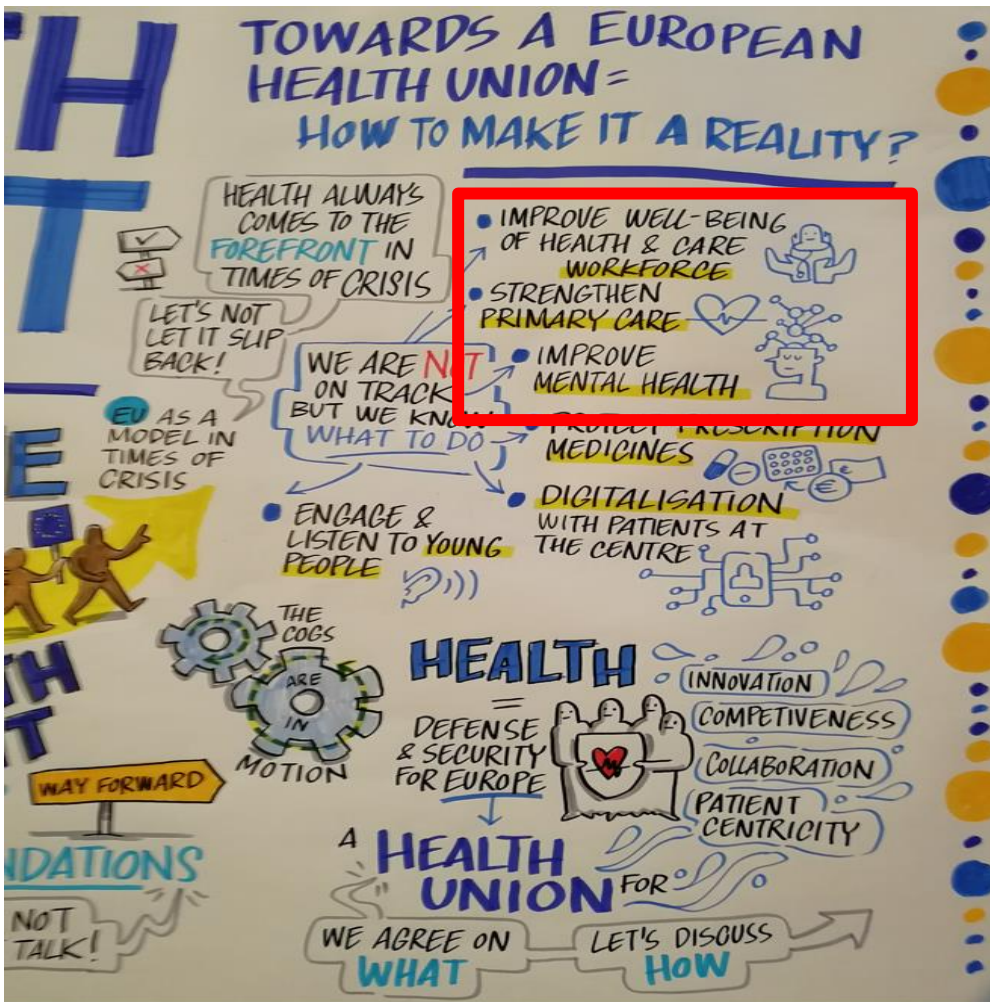 TH
T
TOWARDS A EUROPEAN
HEALTH UNION =
HOW TO MAKE IT A REALITY?
HEALTH ALWAYS
COMES TO THE
FOREFRONT IN
TIMES OF CRISIS
LET'S NOT
LET IT SLIP
BACK!
EU AS A
MODEL IN
TIMES OF
CRISIS
WE ARE NOT
ON TRACK
BUT WE KNOW
WHAT TO DO
• IMPROVE WELL-BEING
OF HEALTH & CARE
WORKFORCE
• STRENGTHEN
PRIMARY CARE
• IMPROVE
MENTAL HEALTH
• PROTECT PRESCRIPTION
MEDICINES
€
€
• DIGITALISATION
WITH PATIENTS AT
THE CENTRE
• ENGAGE &
LISTEN TO YOUNG
PEOPLE
E
THE
COGS
ARE
IN
MOTION
TH
T
WAY FORWARD
NDATIONS
NOT
TALK!
HEALTH
=
DEFENSE
& SECURITY
FOR EUROPE
INNOVATION
COMPETIVENESS
COLLABORATION
PATIENT
CENTRICITY
A HEALTH
UNION FOR
WE AGREE ON
WHAT
LET'S DISCUSS
HOW